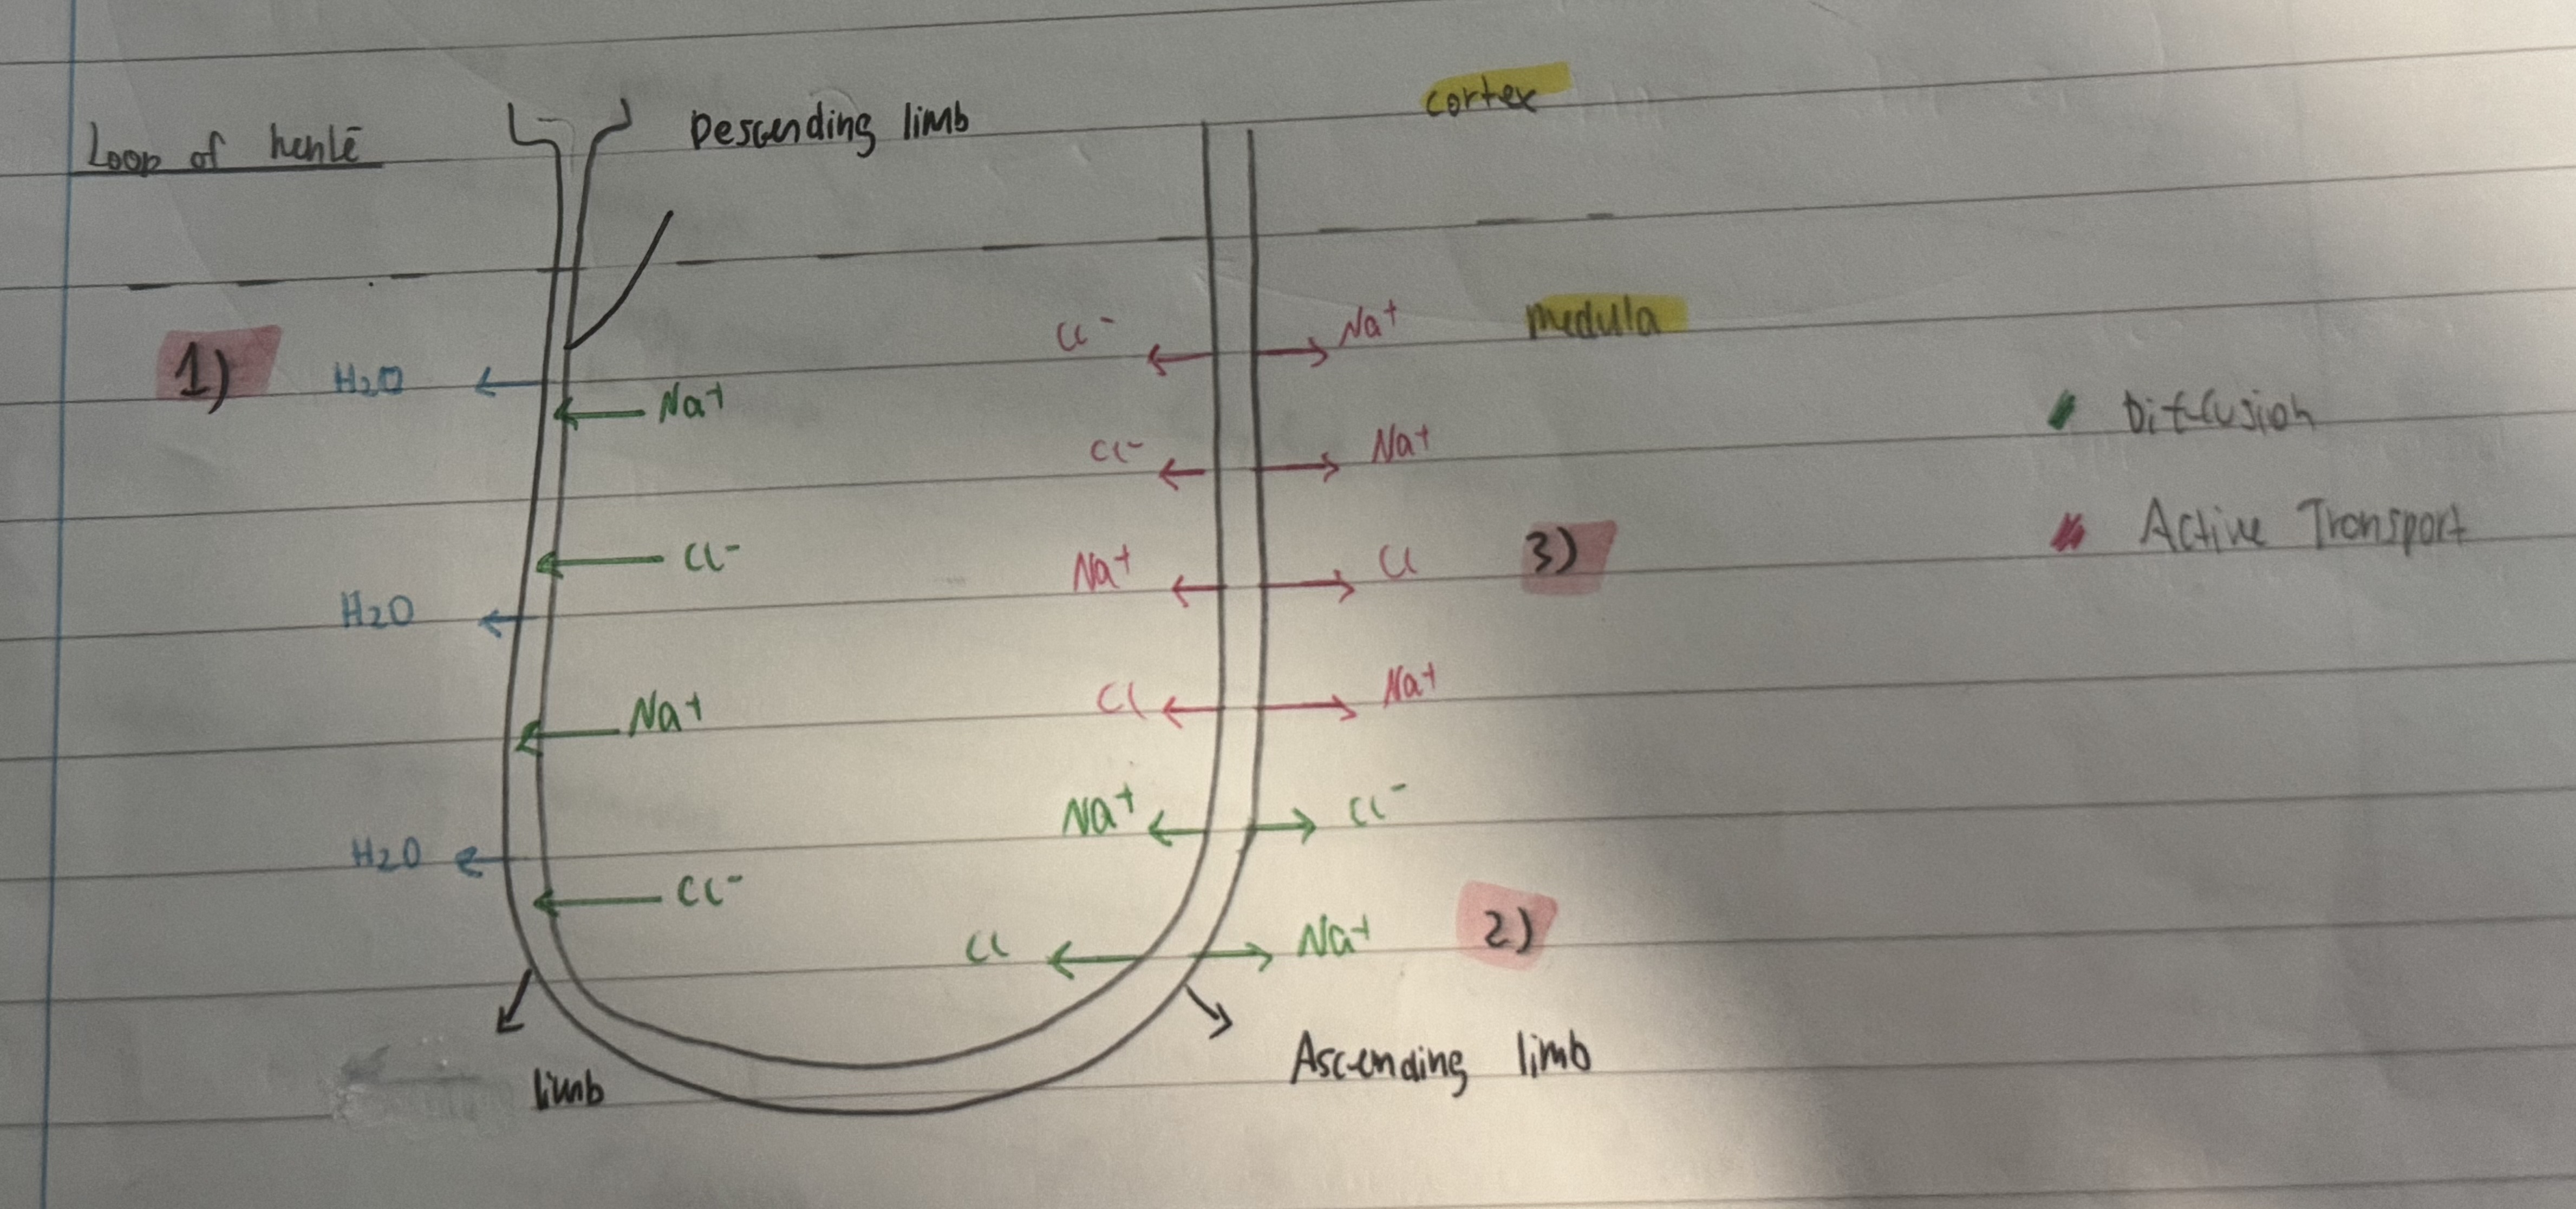 Loop of henlē
Descending limb
cortex
medula
1)
H2O
Na+
Cl-
H2O
Na+
H2O
Cl-
Cl- Na+
Cl- Na+
Na+ Cl
3)
Cl Na+
Na+ Cl-
Cl Na+
2)
limb
Ascending limb
Diffusion
Active Transport